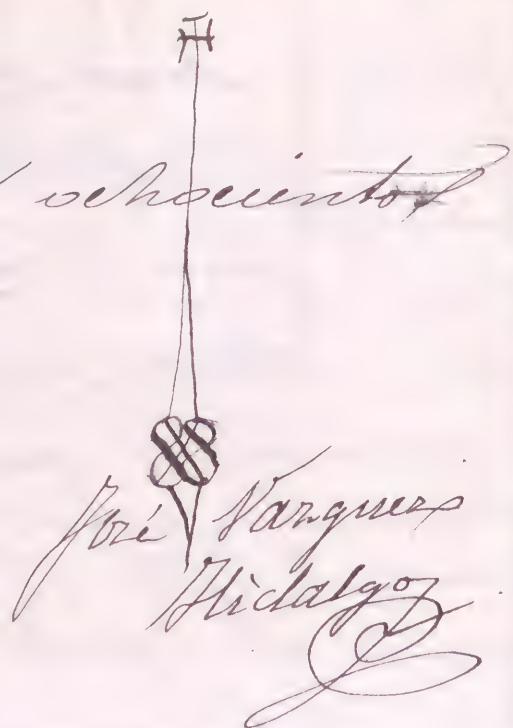 ochocientos
José Vazquez
Hidalgo